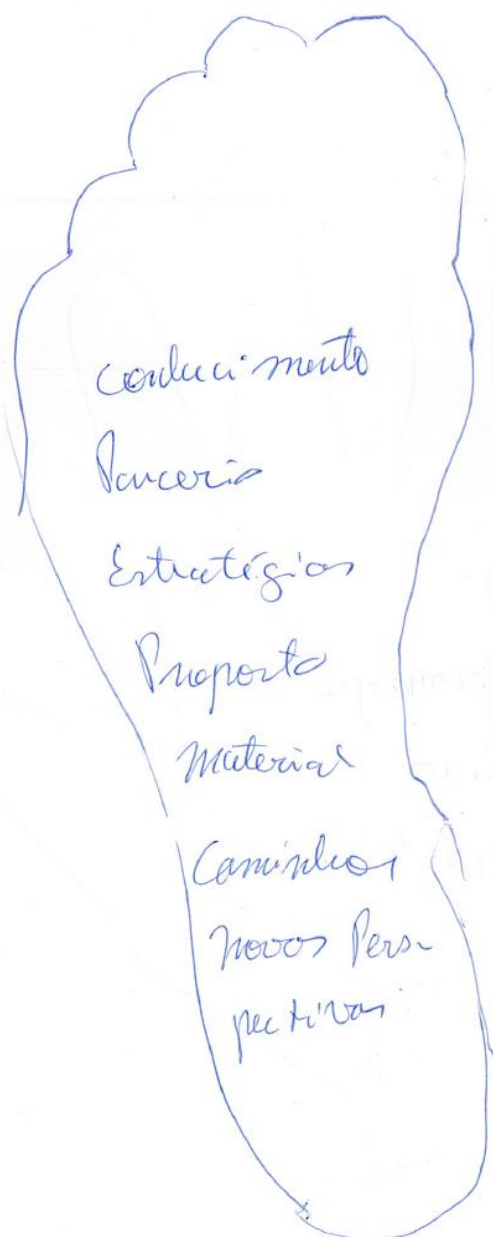 conhecimento
Parceria
Estratégias
Proposta
Material
Caminhos
novas Pers-
pectivas